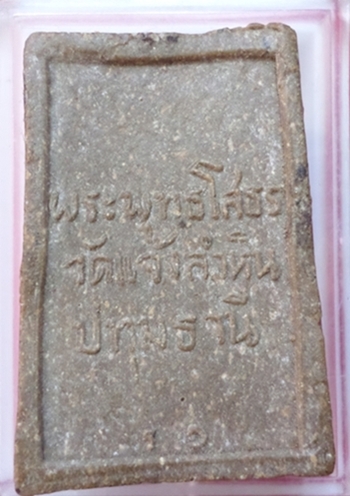 พระพุทธโสธร
วัดแจ้งลำหิน
ปทุมธานี
๑๐